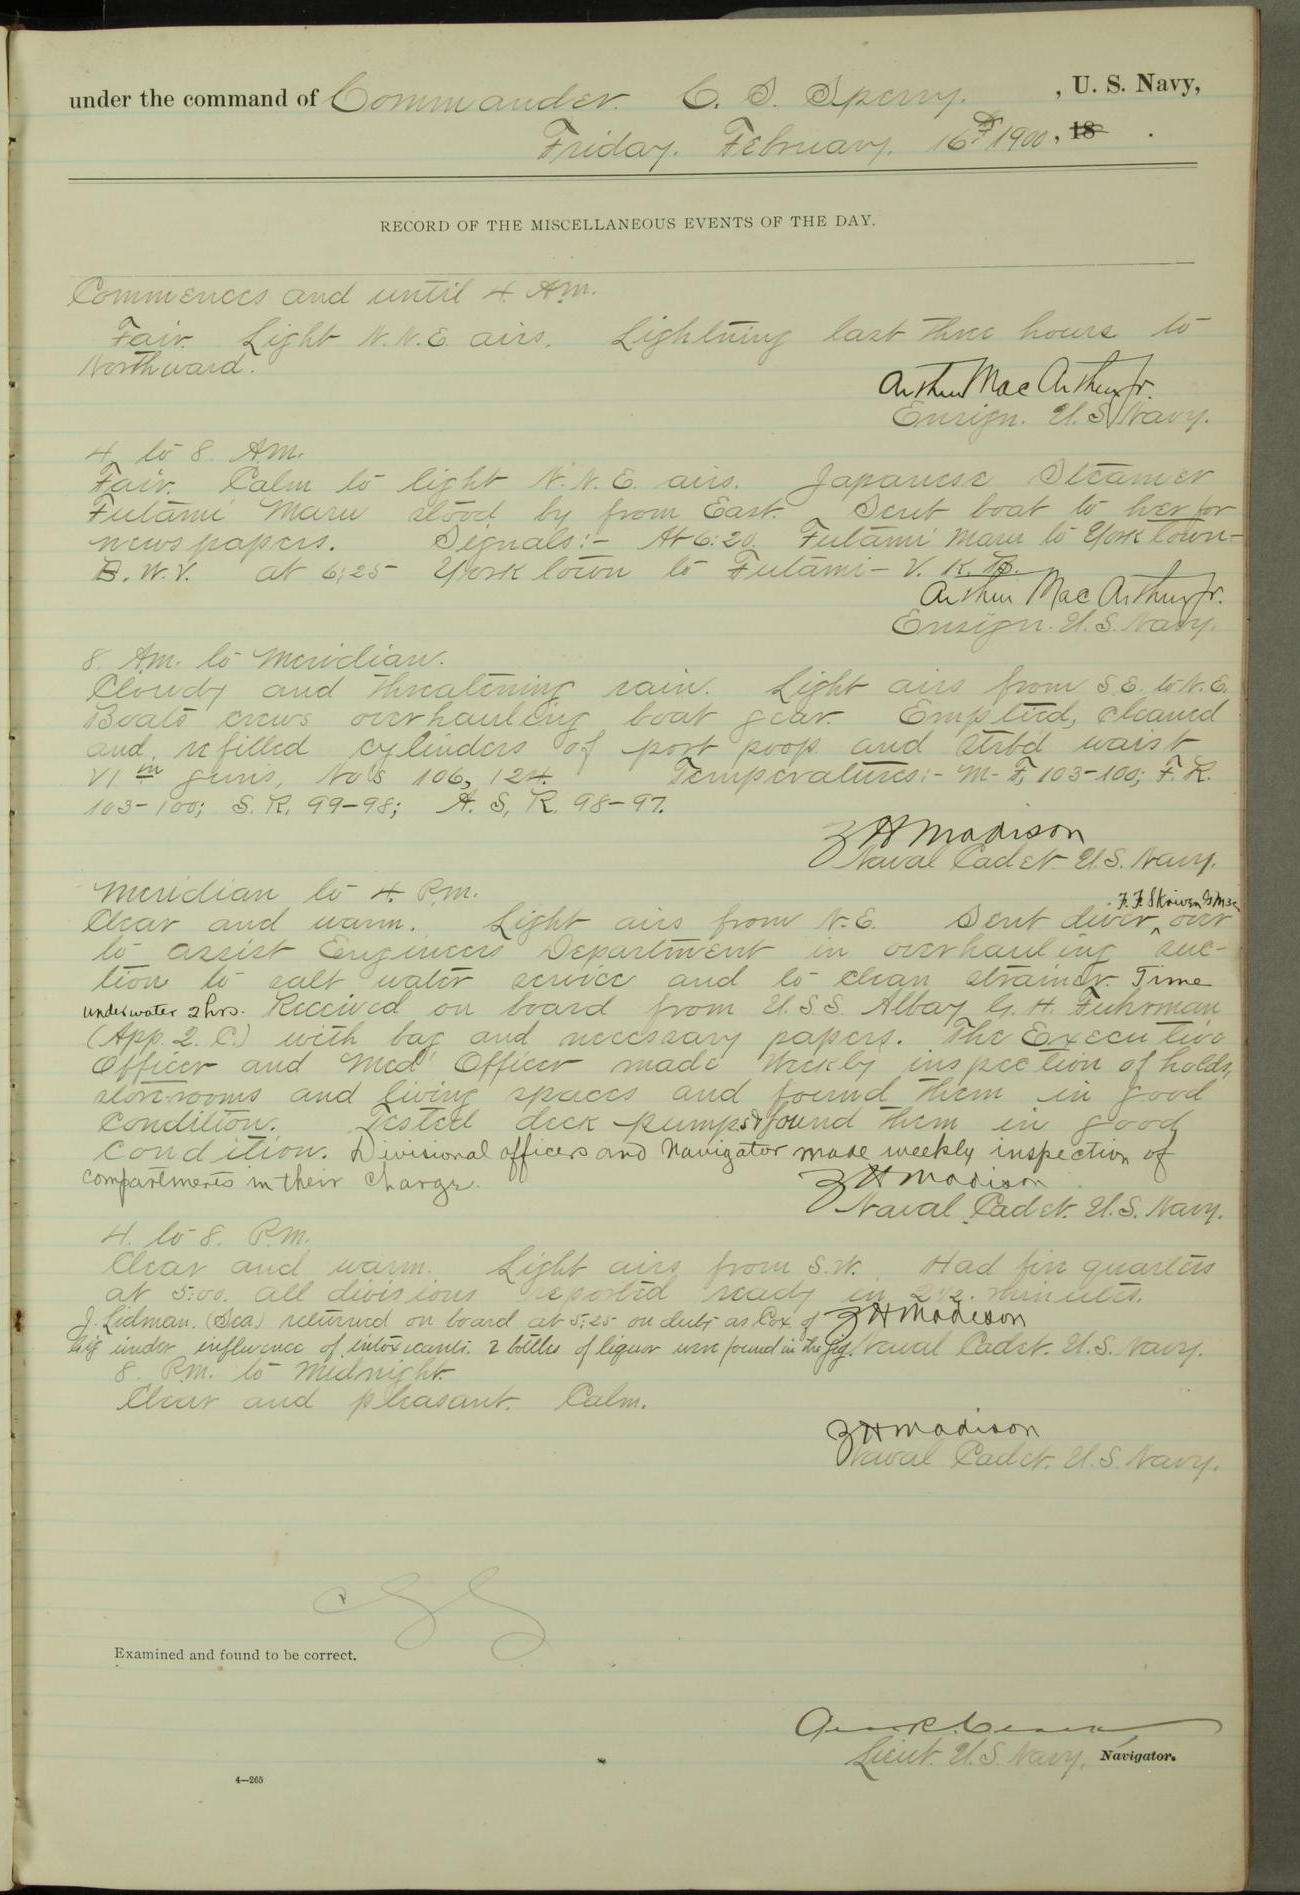 under the command of Commander C. S. Sperry. , U. S. Navy,
Friday. February. 16th 1900, 18 .
RECORD OF THE MISCELLANEOUS EVENTS OF THE DAY.
Commences and until 4 A.m.
Fair. Light N. N. E. airs. Lightning last three hours to
Northward.
Arthur Mac Arthur Jr.
Ensign. U. S. Navy.
4 to 8 A.m.
Fair. Calm to light N. N. E. airs. Japanese Steamer
Futami Maru stood by from East. Sent boat to her for
newspapers. Signals:- At 6:20 Futami Maru to Yorktown-
B. W. V. at 6:25 Yorktown to Futami- V. K.
Arthur Mac Arthur Jr.
Ensign. U. S. Navy.
8. Am. to Meridian.
Cloudy and threatening rain. Light airs from S. E. to N. E.
Boats crews overhauling boat gear. Emptied, cleaned
and refilled cylinders of port poop and strb'd waist
VI in guns, No's 106, 124. Temperatures:- M- F, 103-100; F. R.
103-100; S. R. 99-98; A. S, R. 98-97.
Z H Madison
Naval Cadet. U. S. Navy.
Meridian to 4 P.m.
F. F. Skriven G M 3c
Clear and warm. Light airs from N. E. Sent diver ^ over
to assist Engineers Department in overhauling suc-
tion to salt water service and to clean strainer. Time
under water 2 hrs. Received on board from U. S. S. Albay G. H. Fuhrman
(App. 2. C.) with bag and necessary papers. The Executive
Officer and Med' Officer made Weekly inspection of holds,
store-rooms and living spaces and found them in good
condition. Tested deck pumps & found them in good
condition. Divisional officers and Navigator made weekly inspection of
compartments in their charge.
Z H Madison
Naval Cadet. U. S. Navy.
4. to 8. P.m.
Clear and warm. Light airs from S. W. Had fire quarters
at 5:00. all divisions reported ready in 2 1/2 minutes.
J. Lidman. (Sea) returned on board at 5:25 on duty as Cox. of Z H Madison
Gig under influence of intoxicants. 2 bottles of liquor were found in the gig. Naval Cadet. U. S. Navy.
8 P.m. to Midnight.
Clear and pleasant. Calm.
Z H Madison
Naval Cadet. U. S. Navy.
Examined and found to be correct.
Lieut. U. S. Navy, Navigator.
4—265